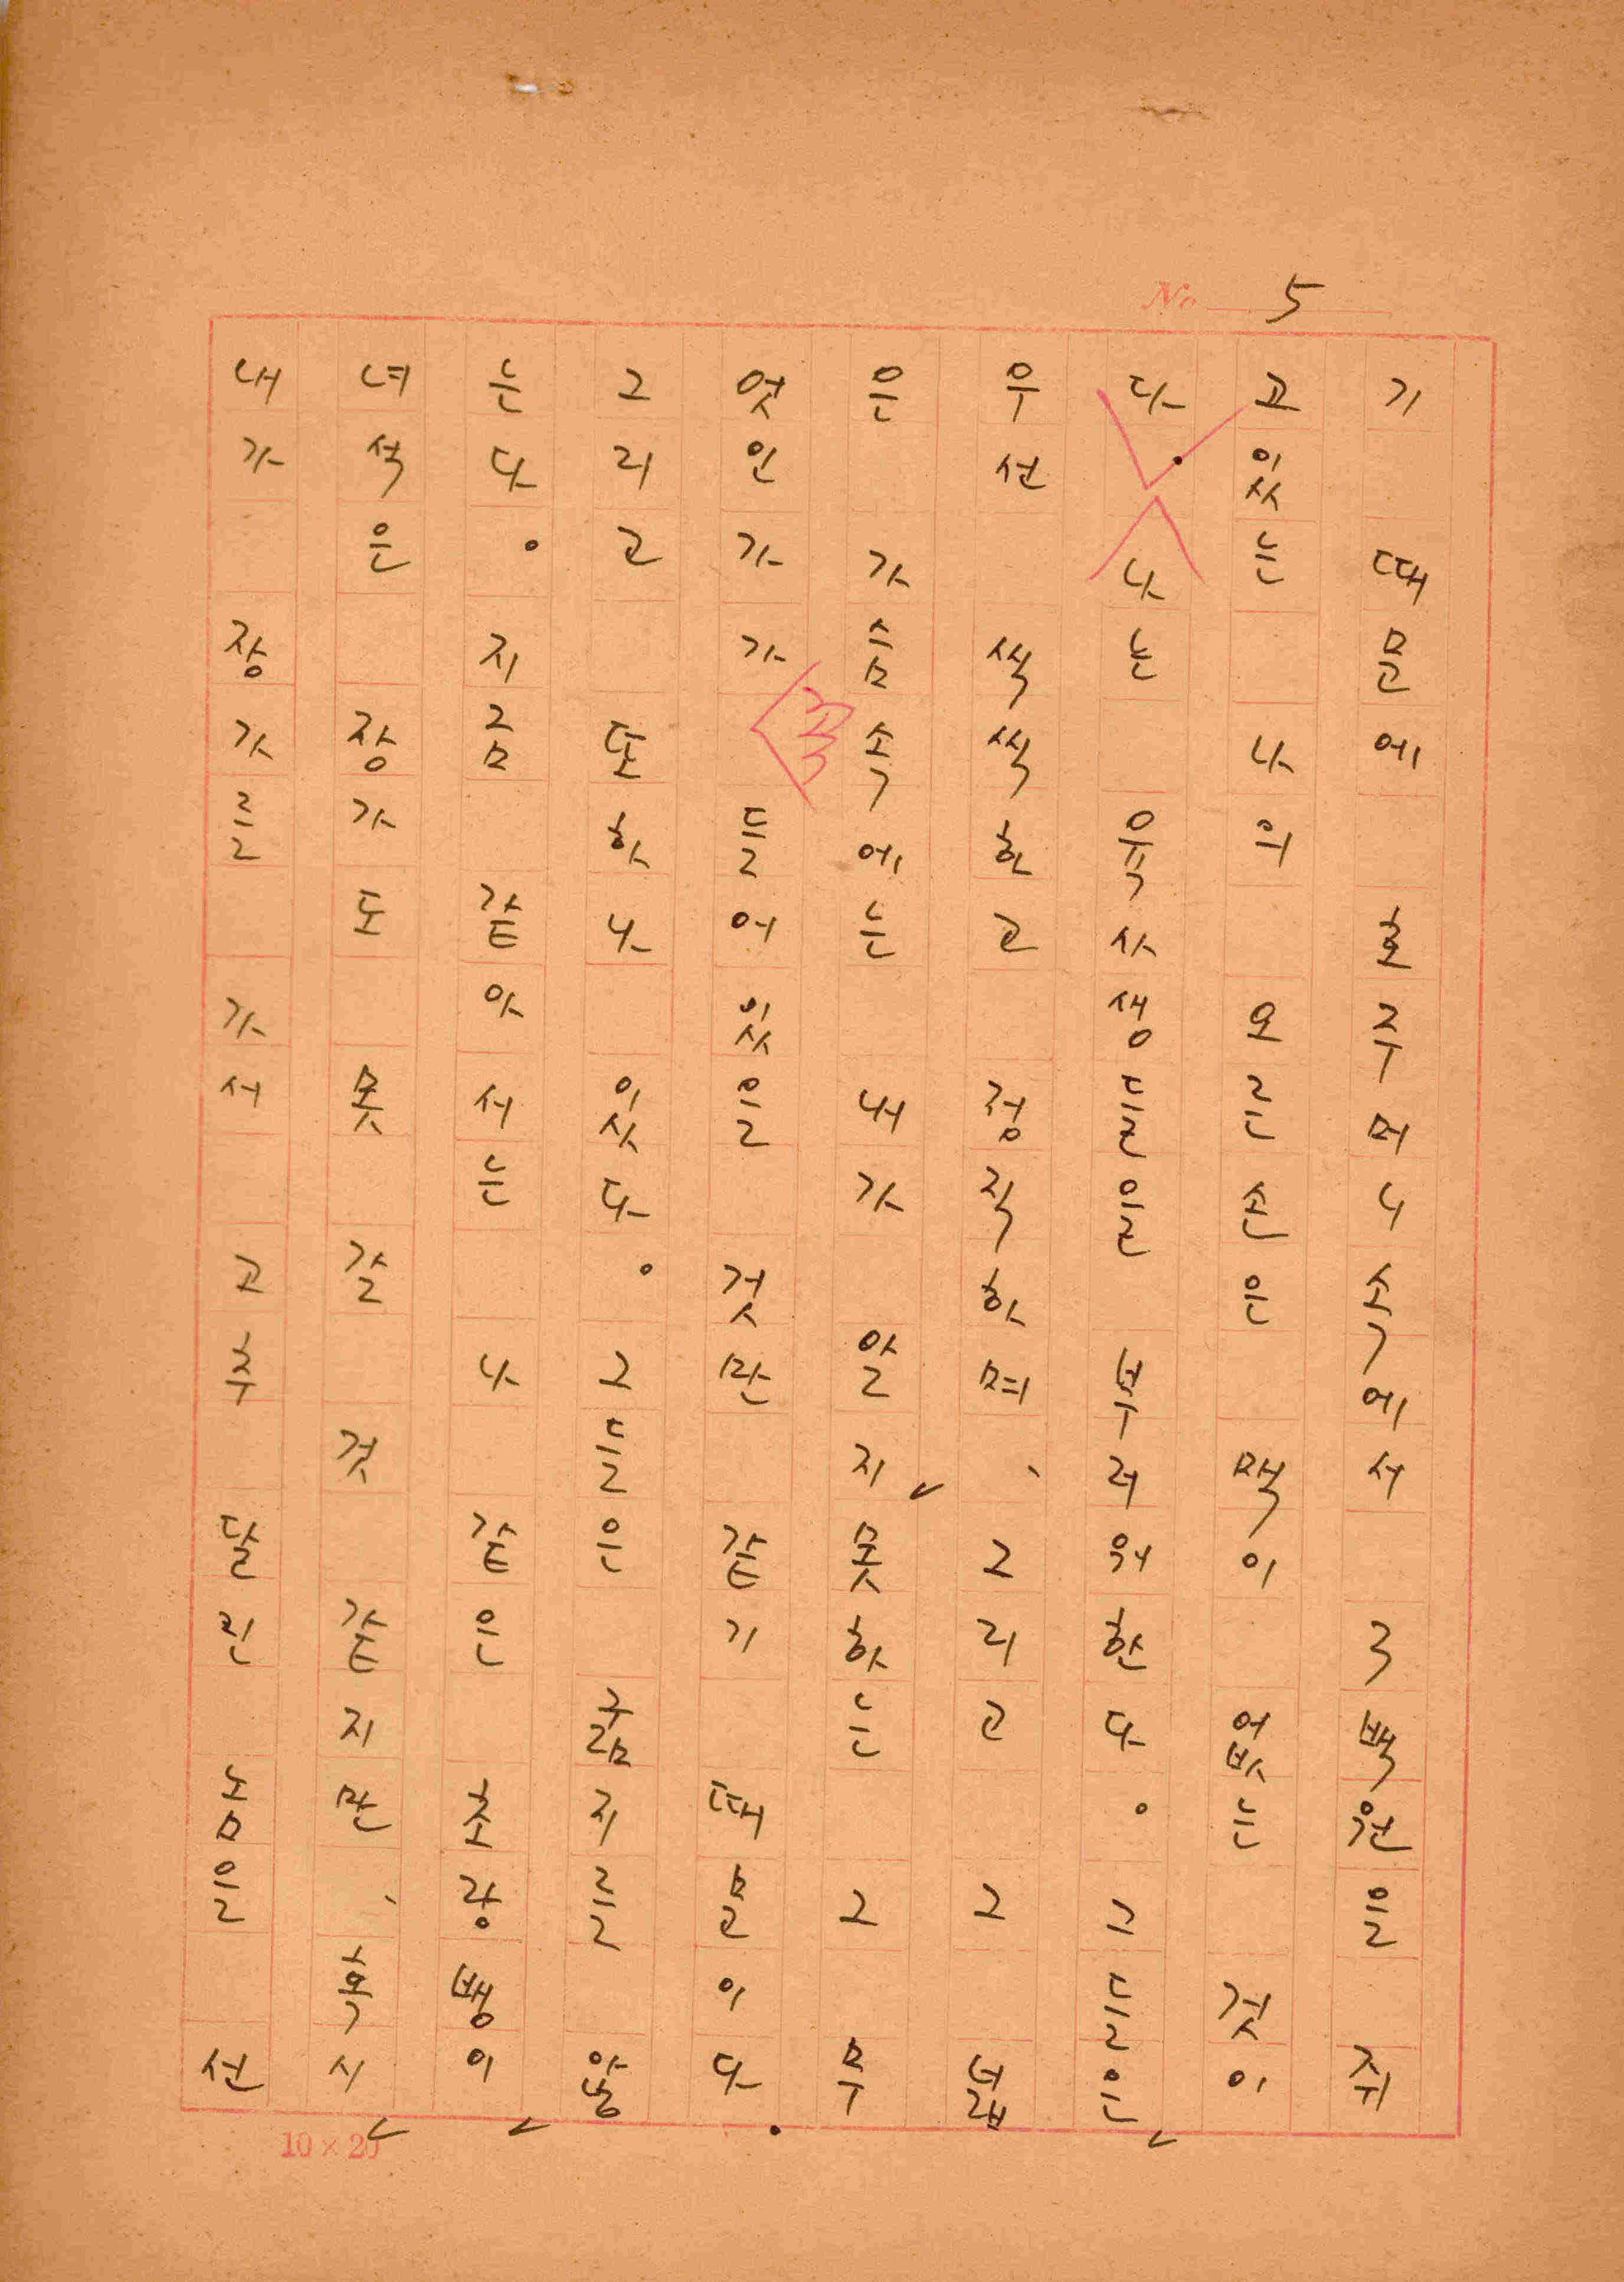 No 5
기 때문에 호주머니속에서 3백원을 쥐
고있는 나의 오른손은 맥이 없는 것이
다. 나는 육사생들을 부러워한다. 그들은
우선 씩씩하고 정직하며, 그리고 그 넓
은 가슴속에는 내가 알지못하는 그 무
엇인가가 들어있을 것만 같기 때문이다.
그리고 또하나 있다. 그들은 굶지를 않
는다. 지금 같아서는 나 같은 초랑뱅이
녀석은 장가도 못 갈 것 같지만, 혹시
내가 장가를 가서 고추 달린 놈을 선
10×20